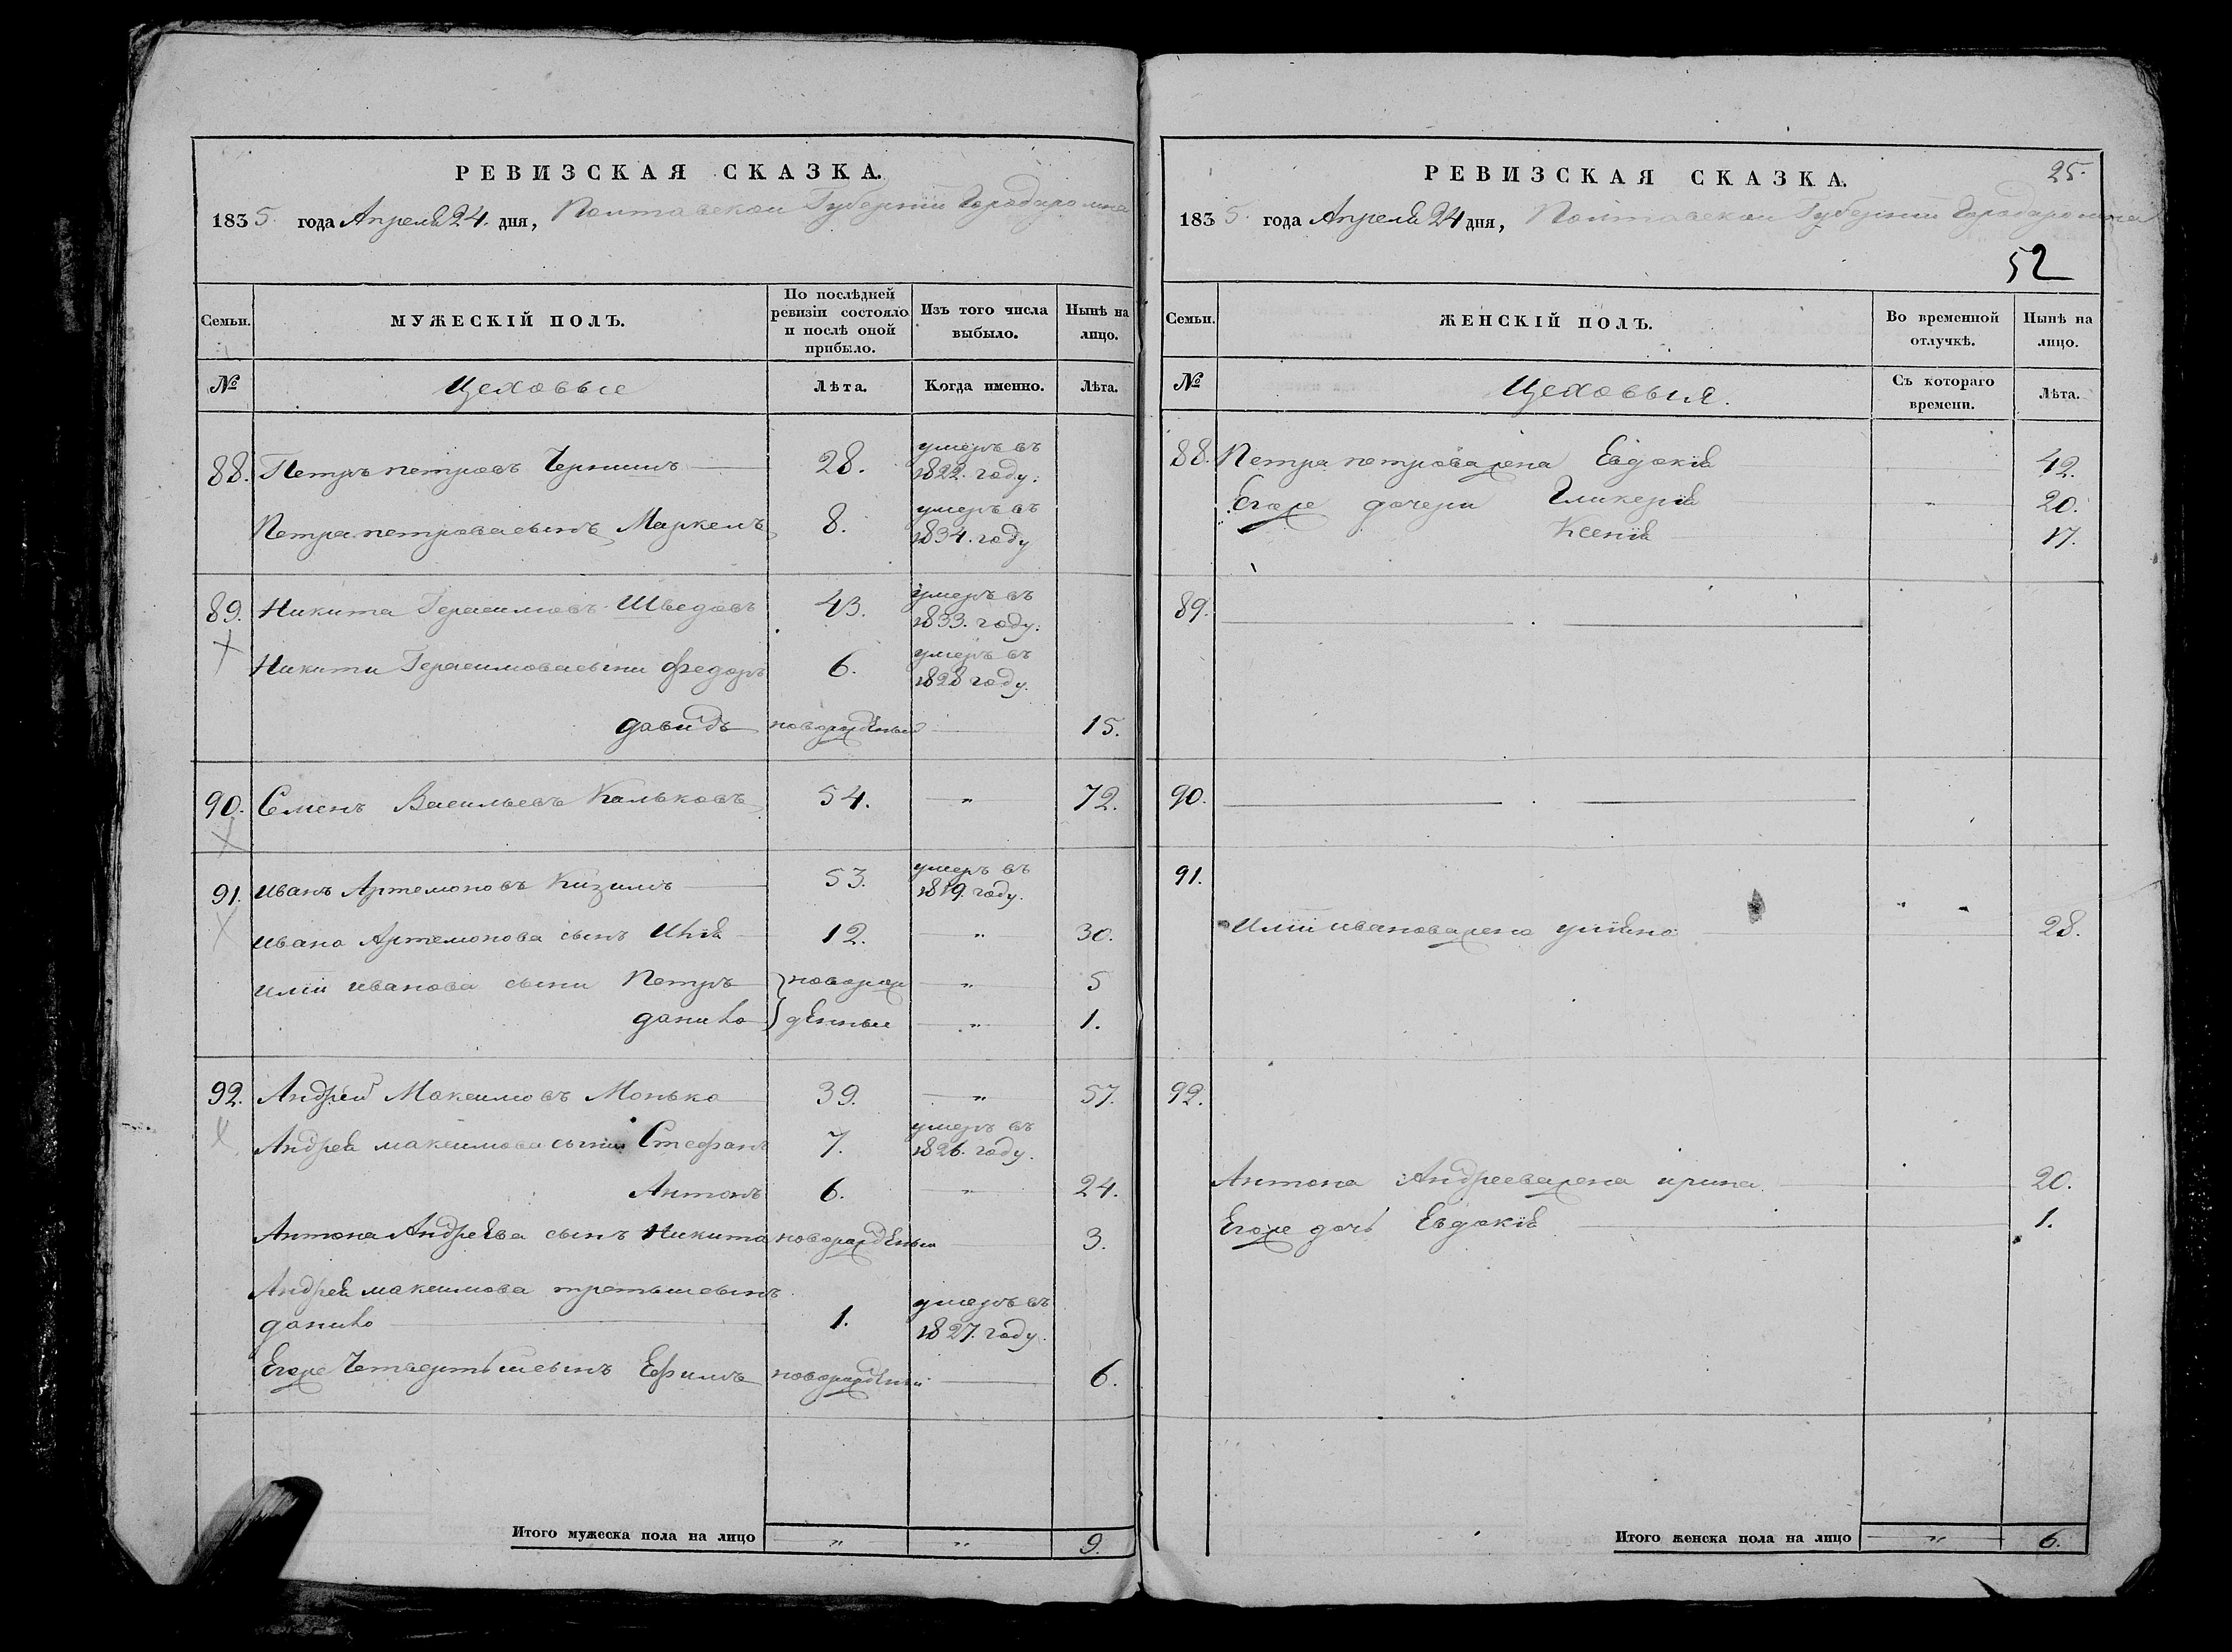 РЕВИЗСКАЯ СКАЗКА.
1835. года Апреля 24. дня, Полтавской Губернии Города ромна
Семьи.
МУЖЕСКІЙ ПОЛЪ.
По послѣдней ревизіи состояло и послѣ оной прибыло.
Изъ того числа выбыло.
Нынѣ на лицо.
№
Цеховые
Лѣта.
Когда именно.
Лѣта.
88. Петръ петровъ Чернишъ 28. умеръ въ 1822. году.
Петра петрова сынъ Маркелъ 8. умеръ въ 1834. году
89. Никита Герасимовъ Шведовъ 43. умеръ въ 1833. году.
Никиты Герасимова сыни Федоръ 6. умеръ въ 1828 году.
давидъ новорожденый 15.
90. Семенъ Васильевъ Кальковъ 54. " 72.
91. иванъ Артемоновъ Кизимъ 53. умеръ въ 1819. году.
ивана Артемонова сынъ Илія 12. " 30.
илии иванова сыни Петръ новорож " 5
данило денные " 1.
92. Андрей Максимовъ Монько 39. " 57.
Андрея максимова сыни Стефанъ 7. умеръ въ 1826. году.
Антонъ 6. " 24.
Антона Андреева сынъ Никита новорожденый 3.
Андрея максимова третый сынъ
данило 1. умеръ въ 1827. году.
Егоже Четвертый сынъ Ефимъ новорожденый 6.
Итого мужеска пола на лицо " " 9.
25.
РЕВИЗСКАЯ СКАЗКА.
1835. года Апреля 24 дня, Полтавской Губернии Города ромна
52
Семьи.
ЖЕНСКІЙ ПОЛЪ.
Во временной отлучкѣ.
Нынѣ на лицо.
№
Цеховыя.
Съ котораго времени.
Лѣта.
88. Петра петрова жена Евдокія 42.
Егоже дочери Гликерія " 20.
Ксенія 17.
89.
90.
91.
Илии иванова жена уліяна 28.
92.
Антона Андреева жена ирина 20.
Егоже дочь Евдокія 1.
Итого женска пола на лицо " 6.